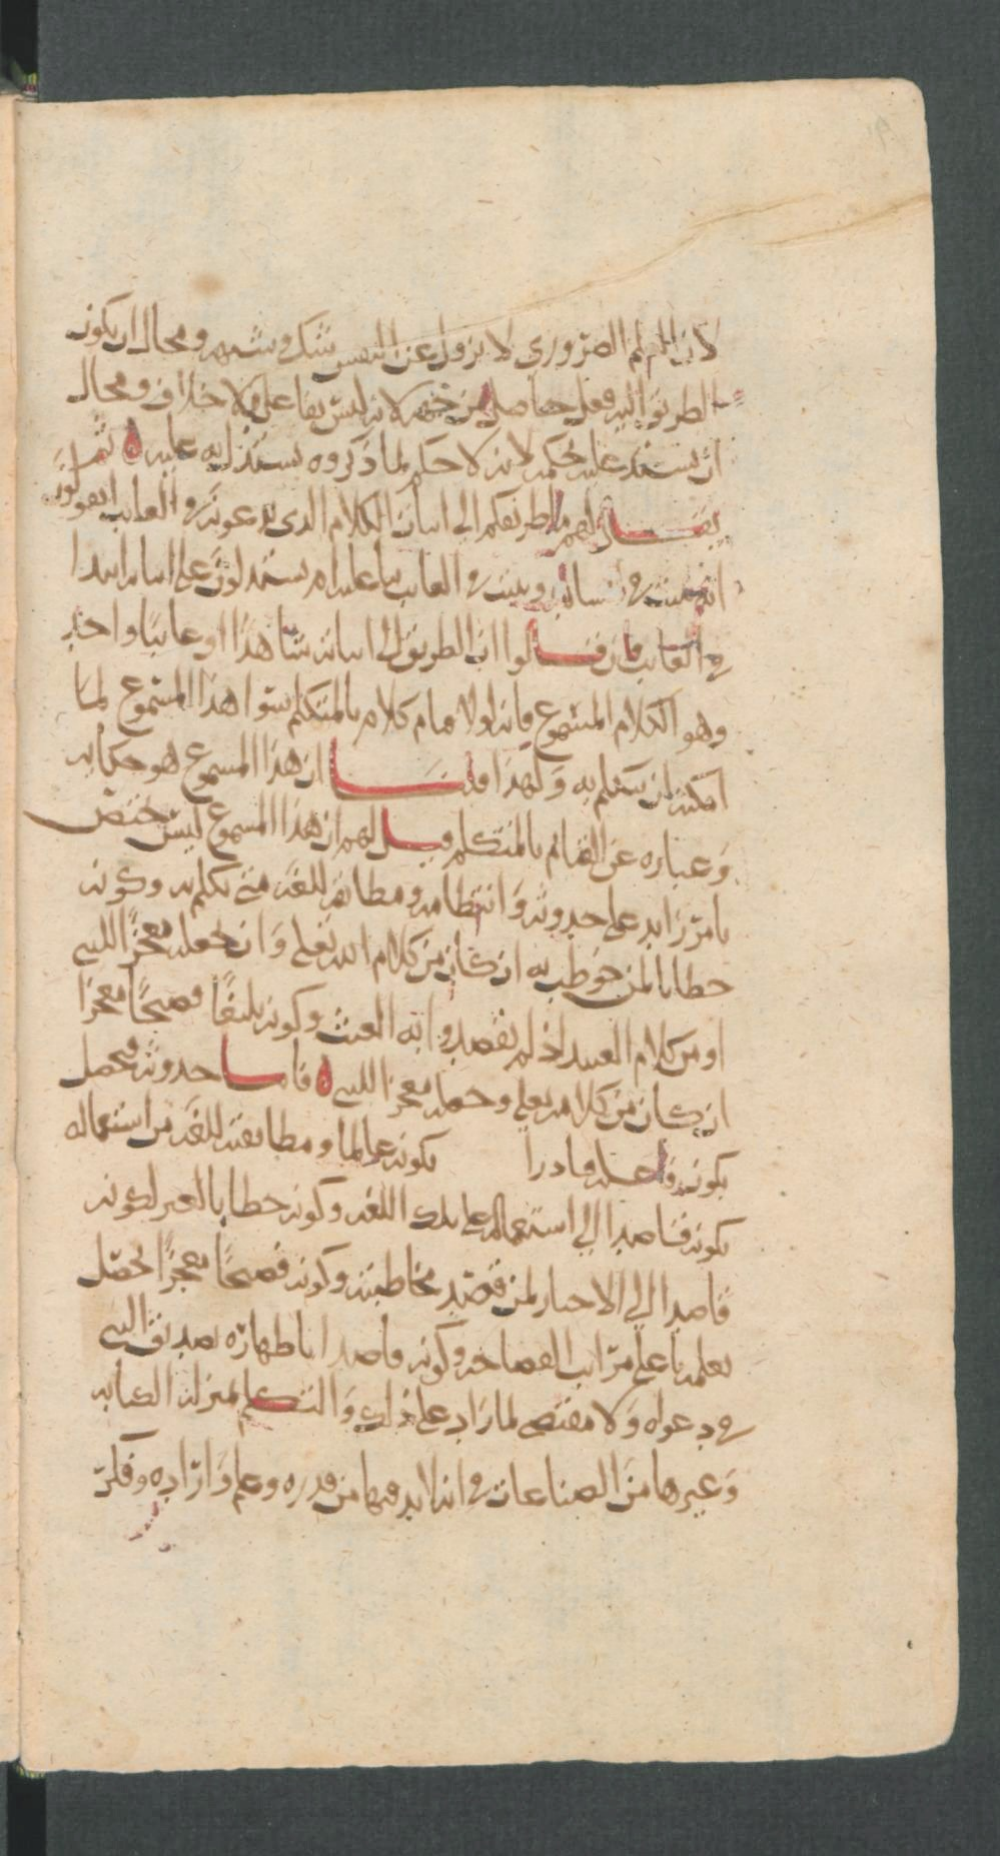 لان العلم الضروري لا يزول عن النفس بشك وشبهه ومحال ان يكون
الطريق اليه فعل حاصل من جهته لانه ليس بفاعل بلا خلاف ومحال
ان يستدل عليه بحكمه لانه لا حكم لما ذكروه يستدل به عليه ثم
يقال لهم ما طريقكم الى اثبات الكلام الذى تدعونه في الغايب اتقولون
انه يثبت في الشاهد ويثبت في الغايب بناء عليه ام تستدلون على اثباته ابتدا
في الغايب فان قالوا ان الطريق الى اثباته شاهدا او غايبا واحد
وهو الكلام المسموع فانه لولا قيام كلام بالمتكلم سوا هذا المسموع لما
امكنه ان يتكلم به ولهذا قلنا ان هذا المسموع هو حكايه
وعباره عن القائم بالمتكلم قيل لهم ان هذا المسموع ليس يختص
بامر زايد على حدوثه وانتظامه ومطابقته للغه متى تكلم به وكونه
خطابا لمن خوطب به ان كان من كلام الله تعلى وان يجعله معجزا للنبي
او من كلام العبيد اذ لم يقصدوا به العبث وكونه بليغا فصيحا معجزا
ان كان من كلامه تعلى وجعله معجزا للنبي فاما حدوثه فيحصل
بكونه فاعله قادرا بكونه عالما ومطابقته للغه من استعماله
بكونه قاصدا الى استعماله على تلك اللغه وكونه خطابا للغير لكونه
قاصدا الى الاخبار لمن قصد مخاطبته وكونه فصيحا معجزا يحصل
بعلمه باعلى مراتب الفصاحه وكونه قاصدا باظهاره تصديق النبي
في دعواه ولا مقتضى لما زاد على ذلك والتكلم بمنزلة الكتابه
وغيرها من الصناعات في انه لا بد فيها من قدره وعلم وارادة وفكر